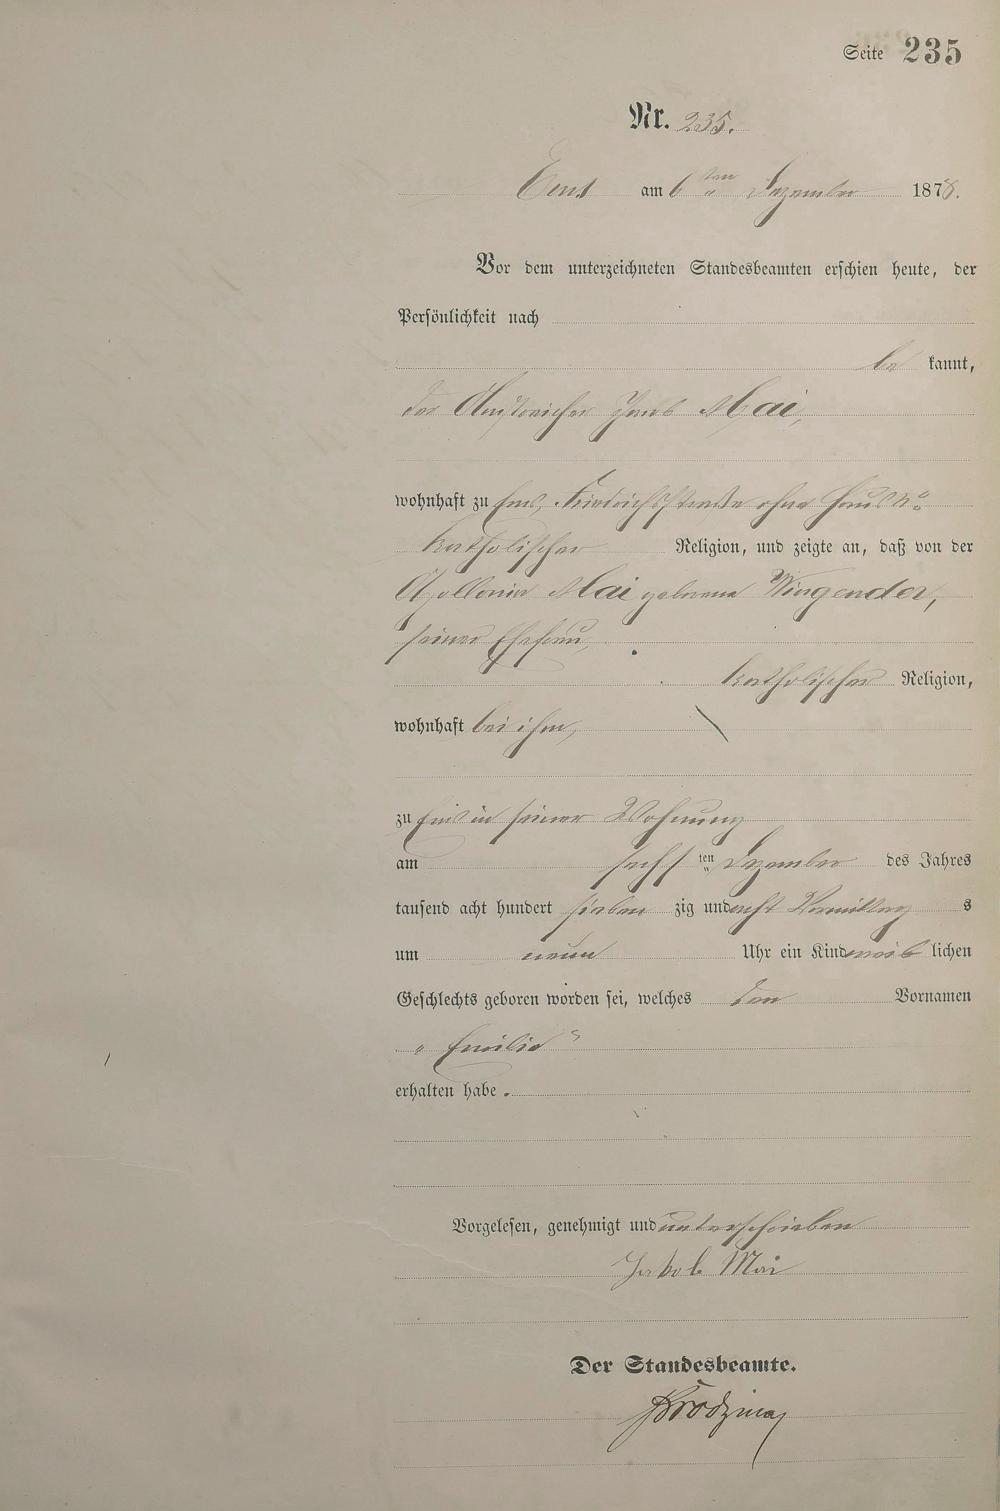 Seite 235
Nr. 235.
Ems am 6ten Dezember 1878.
Vor dem unterzeichneten Standesbeamten erschien heute, der
Persönlichkeit nach
be kannt,
der Anstreicher Jacob Mai,
wohnhaft zu Ems, Friedrichsstraße ohne Haus No
katholischer Religion, und zeigte an, daß von der
Apollonia Mai geborene Wingender,
seiner Ehefrau,
katholischer Religion,
wohnhaft bei ihm,
zu Ems in seiner Wohnung
am sechsten Dezember des Jahres
tausend acht hundert sieben zig und acht Vormittag s
um neun Uhr ein Kind weib lichen
Geschlechts geboren worden sei, welches den Vornamen
„Emilie“
erhalten habe.
Vorgelesen, genehmigt und unterschrieben
Jakob Mai
Der Standesbeamte.